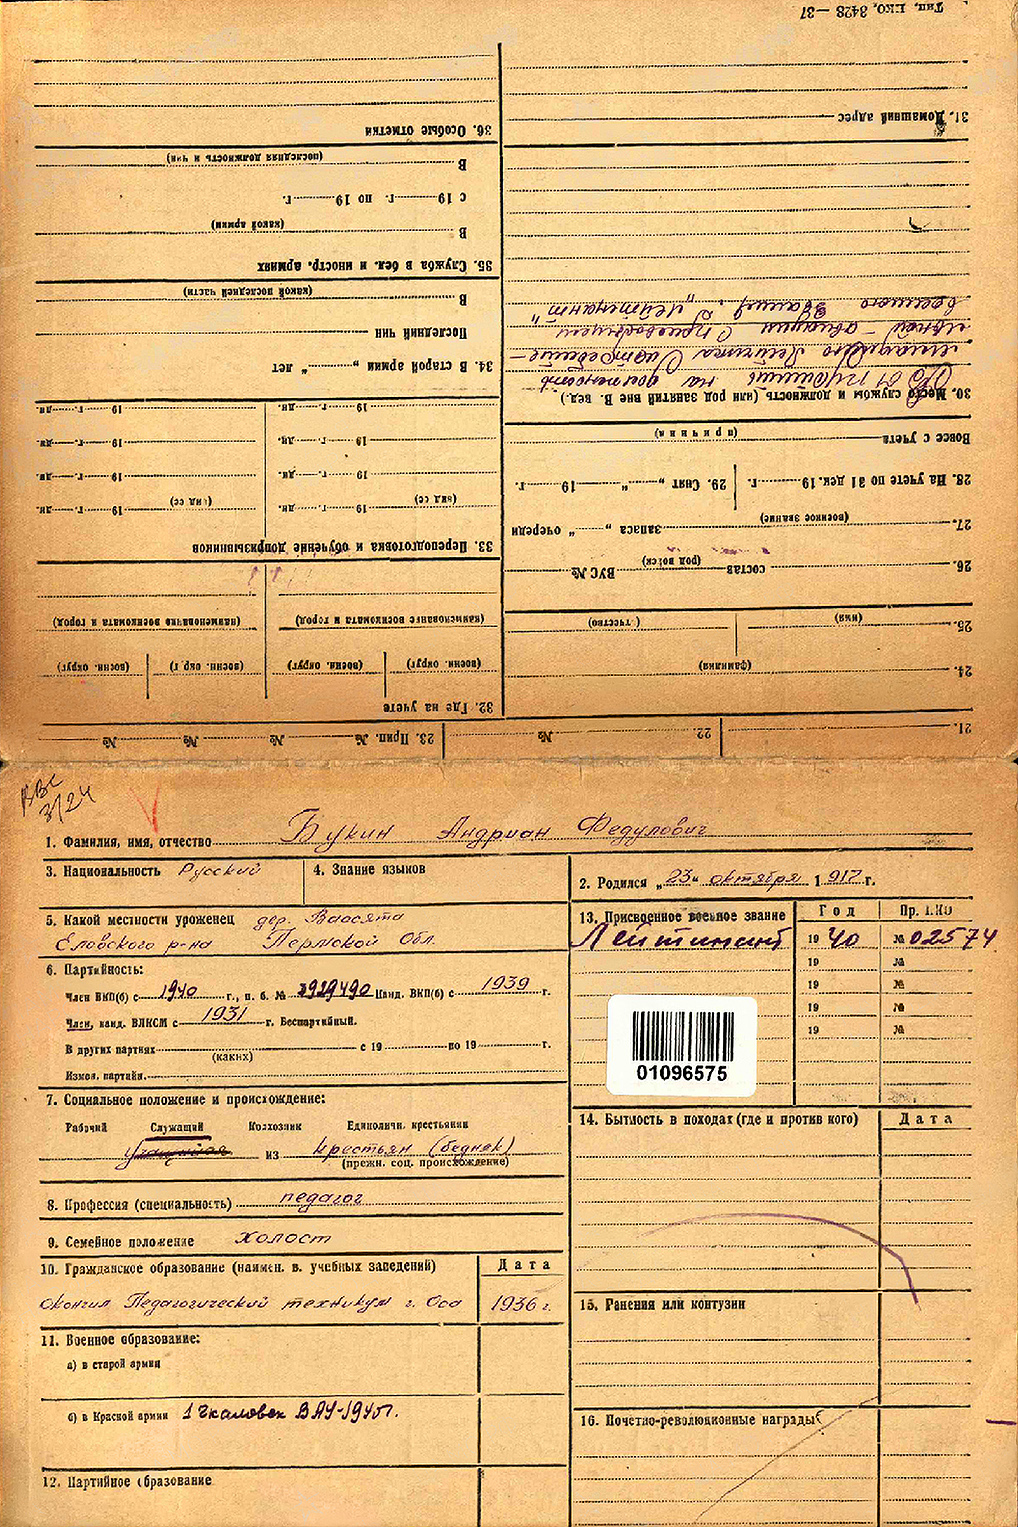 ВВС
3/24
1. Фамилия, имя, отчество Букин Андриан Федулович
3. Национальность Русский
4. Знание языков
2. Родился „23“ октября 1912 г.
5. Какой местности уроженец дер.
Еловского р-на Пермской Обл.
6. Партийность:
Член ВКП(б) с 1940 г., п. б. № 3929490 Канд. ВКП(б) с 1939 г.
Член, канд. ВЛКСМ с 1931 г. Беспартийный.
В других партиях с 19 по 19 г.
(каких)
Измен. партийн.
7. Социальное положение и происхождение:
Рабочий Служащий Колхозник Единоличн. крестьянин
учащийся из крестьян (бедняк)
(прежн. соц. происхождение)
8. Профессия (специальность) педагог
9. Семейное положение холост
10. Гражданское образование (наимен. в. учебных заведений) Дата
Окончил Педагогический техникум г. Оса 1936 г.
11. Военное образование:
а) в старой армии
б) в Красной армии 1 Чкаловск ВАУ-1940г.
12. Партийное образование
13. Присвоенное военное звание Год Пр. НКО
Лейтинант 1940 № 02574
19 №
19 №
19 №
19 №
01096575
14. Бытность в походах (где и против кого) Дата
15. Ранения или контузии
16. Почетно-революционные награды
21.
22. №
23. Прип. № № № №
24.
(фамилия)
25.
(имя) (отчество)
26. состав ВУС №
(род войск)
27. запаса „ “ очереди
(военное звание)
28. На учете по 31 дек. 19 г. 29. Снят „ “ 19 г.
Вовсе с учета
(причина)
30. Место службы и должность (или род занятий вне В. вед.)
на должность
младшего Летчика
авиации с присвоением
военного звания: „Лейтинант“
31. Домашний адрес
32. Где на учете
(воен. округ) (воен. округ) (воен. окр г) (воен. округ)
(наименование военкомата и город) (наименование военкомата и город)
33. Переподготовка и обучение допризывников
(вид сс) 19 г. дн. (вид сс) 19 г. дн.
19 г. дн. 19 г. дн.
19 г. дн. 19 г. дн.
19 г. дн. 19 г. дн.
34. В старой армии „ “ лет
Последний чин
В
(какой последней части)
35. Служба в бел. и иностр. армиях
В
(какой армии)
с 19 г. по 19 г.
В
(последняя должность и чин)
36. Особые отметки
Тип. НКО, 3428—37